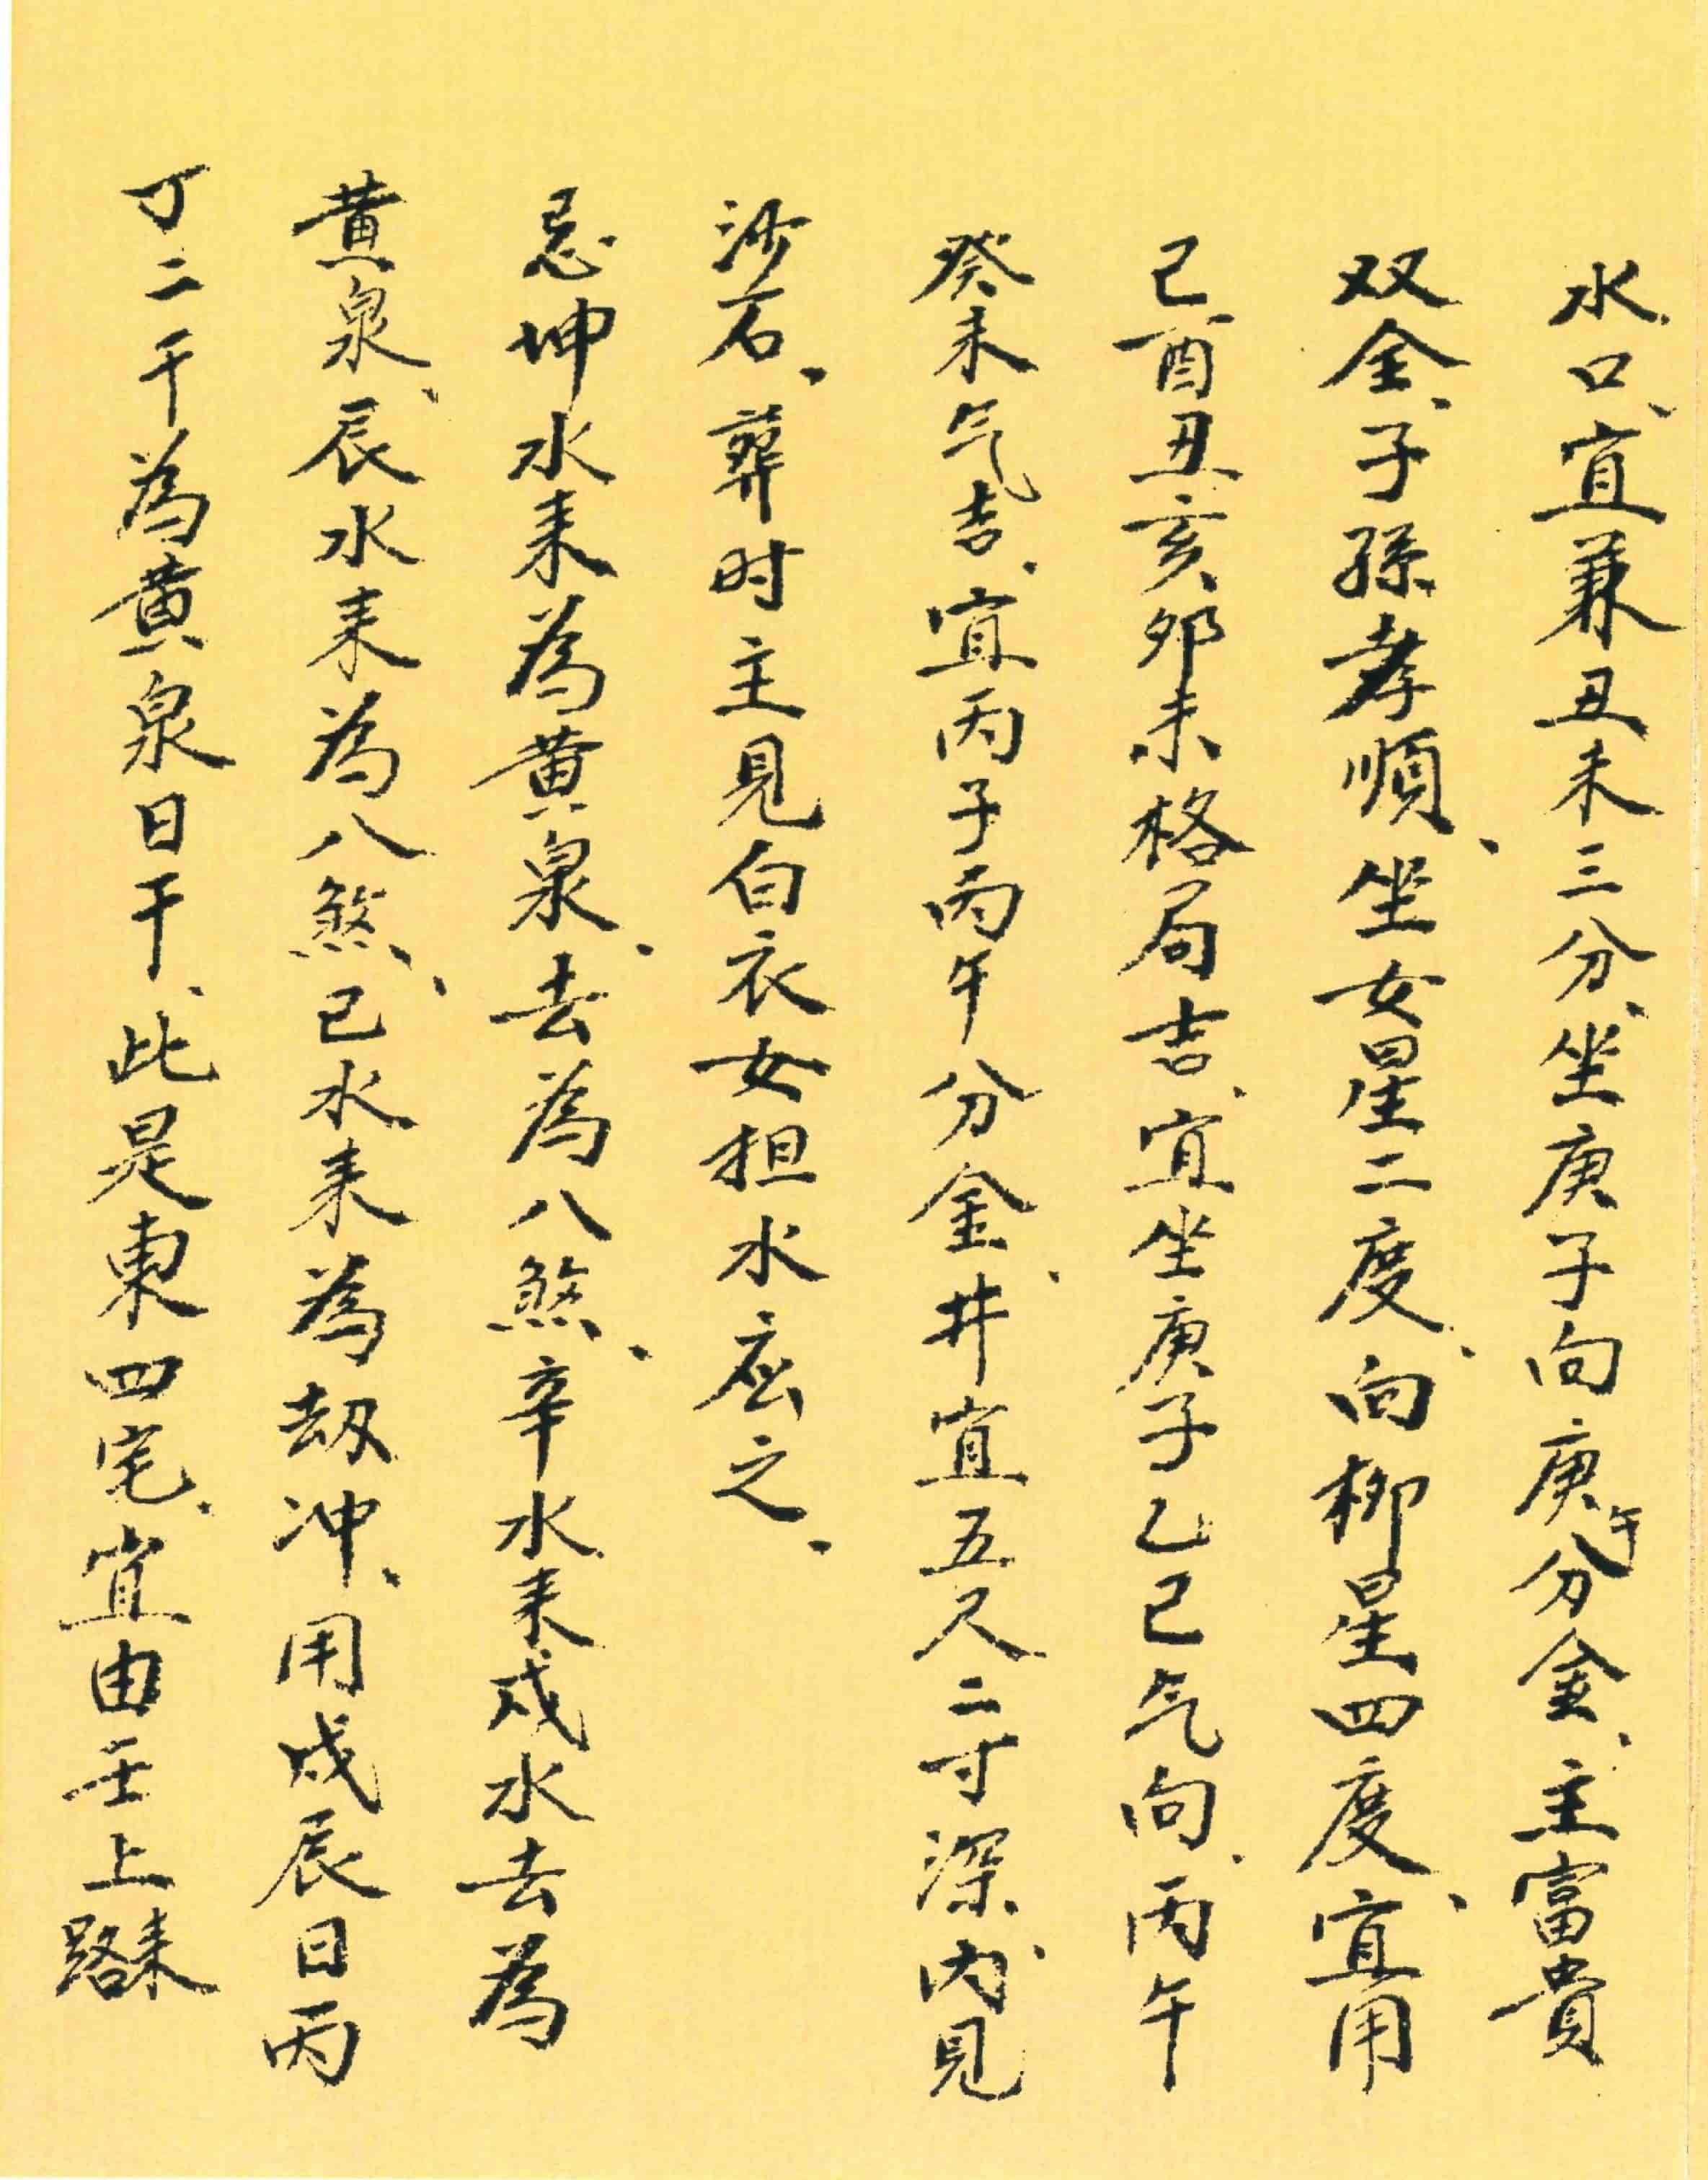 水口、宜兼丑未三分、坐庚子向庚午分金、主富貴
双全、子孫孝順、坐女星二度、向柳星四度、宜用
巳酉丑亥卯未格局吉、宜坐庚子乙巳气向、丙午
癸未气吉、宜丙子丙午分金、井宜五尺二寸深、内見
沙石、葬时主見白衣女担水应之、
忌坤水来為黄泉、去為八煞、辛水来戍水去為
黄泉、辰水来為八煞、巳水来為劫冲、用戍辰日丙
丁二干為黄泉日干、此是東四宅、宜由壬上路来